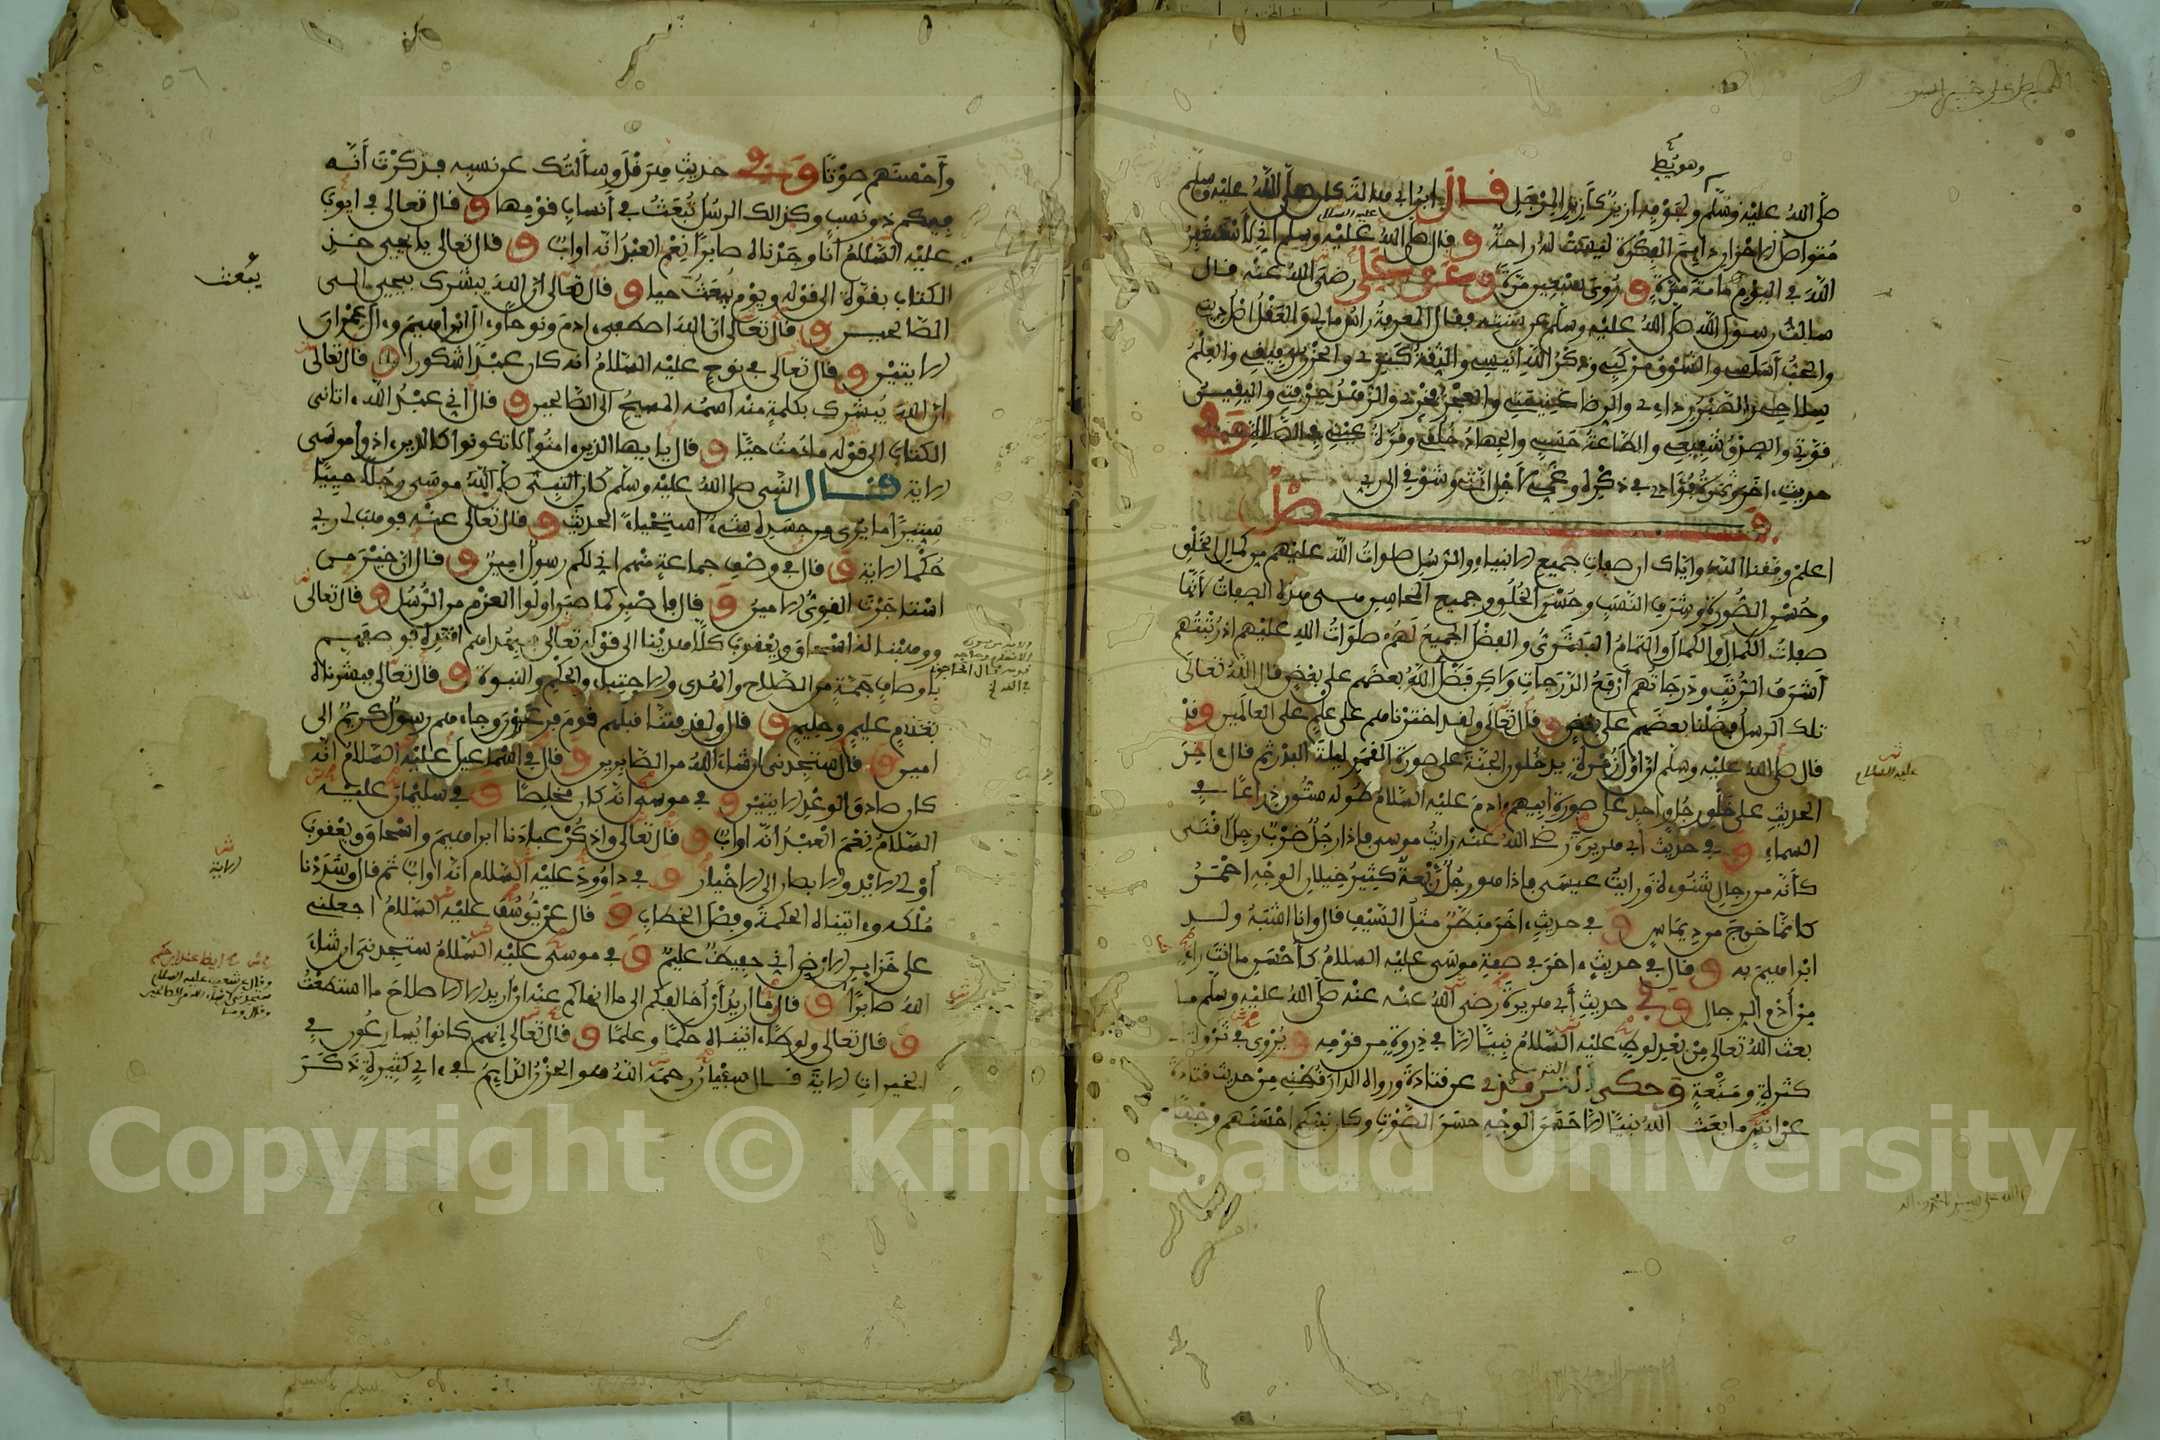 وهو يصلي
صلى الله عليه وسلم ولجوفه ازيز كازيز المرجل قال ابن ابي هالة كان صلى الله عليه وسلم
متواصل الاحزان دايم الفكرة ليست له راحة وقال صلى الله عليه وسلم اني لاستغفر
عليه السلام
الله في اليوم مائة مرة وروي سبعين مرة وعن علي رضي الله عنه قال
سالت رسول الله صلى الله عليه وسلم عن سنته فقال المعرفة راس مالي والعقل اصل ديني
والحب أساسي والشوق مركبي وذكر الله أنيسي والثقة كنزي والحزن رفيقي والعلم
سلاحي والصبر ردائي والرضا غنيمتي والعجز فخري والزهد حرفتي واليقين
قوتي والصدق شفيعي والطاعة حسبي والجهاد خلقي وقرة عيني في الصلاة وفي
حديث ءاخر وثمرة فؤادي في ذكره وغمي لأجل امتي وشوقي الى ربي
فصل
اعلم وفقنا الله واياك ان صفات جميع الانبياء والرسل صلوات الله عليهم من كمال الخلق
وحسن الصورة وشرف النسب وحسن الخلق وجميع المحاسن هي هذه الصفات لأنها
صفات الكمال والكمال والتمام البشري والفضل الجميع لهم صلوات الله عليهم اذ رتبتهم
أشرف الرتب ودرجاتهم أرفع الدرجات ولكن فضل الله بعضهم على بعض قال الله تعالى
تلك الرسل فضلنا بعضهم على بعض وقال تعالى ولقد اخترناهم على علم على العالمين وقد
قال صلى الله عليه وسلم ان اول زمرة يدخلون الجنة على صورة القمر ليلة البدر ثم قال ءاخر
عليه السلام
الحديث على خلق رجل واحد على صورة ابيهم ءادم عليه السلام طوله ستون ذراعا في
السماء وفي حديث أبي هريرة رضي الله عنه رايت موسى فاذا رجل ضرب رجل اقنى
كأنه من رجال شنوءة ورايت عيسى فاذا هو رجل ربعة كثير خيلان الوجه احمر
كانما خرج من ديماس وفي حديث ءاخر مبطن مثل السيف قال وانا اشبه ولد
ابراهيم به وقال في حديث ءاخر في صفة موسى عليه السلام كأحسن ما انت راء
من أدم الرجال وفي حديث أبي هريرة رضي الله عنه عنه صلى الله عليه وسلم ما
بعث الله تعالى من بعد لوط عليه السلام نبيا الا في ذروة من قومه ويروى في ثروة
كثرة ومنعة وحكى الترمذي عن قتادة ورواه الدارقطني من حديث قتادة
عن انس ما بعث الله نبيا الا حسن الوجه حسن الصوت وكان نبيكم احسنهم وجها
وأحسنهم صوتا وفي حديث هرقل وسألتك عن نسبه فذكرت أنه
فيكم ذو نسب وكذلك الرسل تبعث في أنساب قومها وقال تعالى في ايوب
عليه السلام انا وجدناه صابرا نعم العبد انه اواب وقال تعالى يا يحيى خذ
الكتاب بقوة الى قوله ويوم يبعث حيا وقال تعالى ان الله يبشرك بيحيى الى
يبعث
الصالحين وقال تعالى ان الله اصطفى ءادم ونوحا وءال ابراهيم وءال عمران
الايتين وقال تعالى في نوح عليه السلام انه كان عبدا شكورا وقال تعالى
ان الله يبشرك بكلمة منه اسمه المسيح الى الصالحين وقال اني عبد الله ءاتاني
الكتاب الى قوله ما دمت حيا وقال يا ايها الذين ءامنوا لا تكونوا كالذين ءاذوا موسى
الاية قال النبي صلى الله عليه وسلم كان موسى رجلا حييا
ستيرا ما يرى من جسده شيء استحياء الحديث وقال تعالى عنه فوهب لي ربي
حكما الاية وقال في وصف جماعة منهم اني لكم رسول امين وقال ان خير من
استاجرت القوي الامين وقال فاصبر كما صبر اولوا العزم من الرسل وقال تعالى
ووهبنا له اسحاق ويعقوب كلا هدينا الى قوله تعالى فبهداهم اقتده فوصفهم
باوصاف جمة من الصلاح والهدى والاجتباء والحكم والنبوة وقال تعالى فبشرناه
بغلام عليم وحليم وقال ولقد فتنا قبلهم قوم فرعون وجاءهم رسول كريم الى
امين وقال ستجدني ان شاء الله من الصابرين وقال في اسماعيل عليه السلام انه
كان صادق الوعد الايتين وفي موسى انه كان مخلصا وفي سليمان عليه
السلام نعم العبد انه اواب وقال تعالى واذكر عبادنا ابراهيم واسحاق ويعقوب
الاية
أولي الايدي والابصار الى الاخيار وفي داوود عليه السلام انه أواب ثم قال وشددنا
ملكه وءاتيناه الحكمة وفصل الخطاب وقال عن يوسف عليه السلام اجعلني
على خزاين الارض اني حفيظ عليم وفي موسى عليه السلام ستجدني ان شاء
الله صابرا وقال وما اريد أن أخالفكم الى ما انهاكم عنه ان اريد الا الاصلاح ما استطعت
وقال تعالى ولوطا ءاتيناه حكما وعلما وقال تعالى إنهم كانوا يسارعون في
الخيرات الاية قال سفيان رحمه الله هو الحزن الدايم في ءاي كثيرة ذكر
Copyright © King Saud University